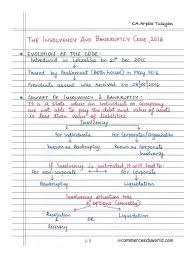 CA Arpita Tulsyan
THE INSOLVENCY AND BANKRUPTCY CODE, 2016
EVOLUTION OF THE CODE:
Introduced in Loksabha on 21st Dec 2015
Passed by Parliament (Both house) in May 2016
Presidents assent was received on 28/05/2016
CONCEPT OF INSOLVENCY & BANKRUPTCY:
It is a state where an Individual or company
are not able to pay the debt and value of assets
is less than value of liabilities.
Insolvency
For Individuals For Corporates/ Organisation
Bankruptcy Corporate Insolvency
If Insolvency is untreated, it will lead to:
For non-corporate For corporates
Bankruptcy Liquidation
Insolvency situation has
2 options (normally)
Resolution Liquidation
or
Recovery
incommercesdaworld.com